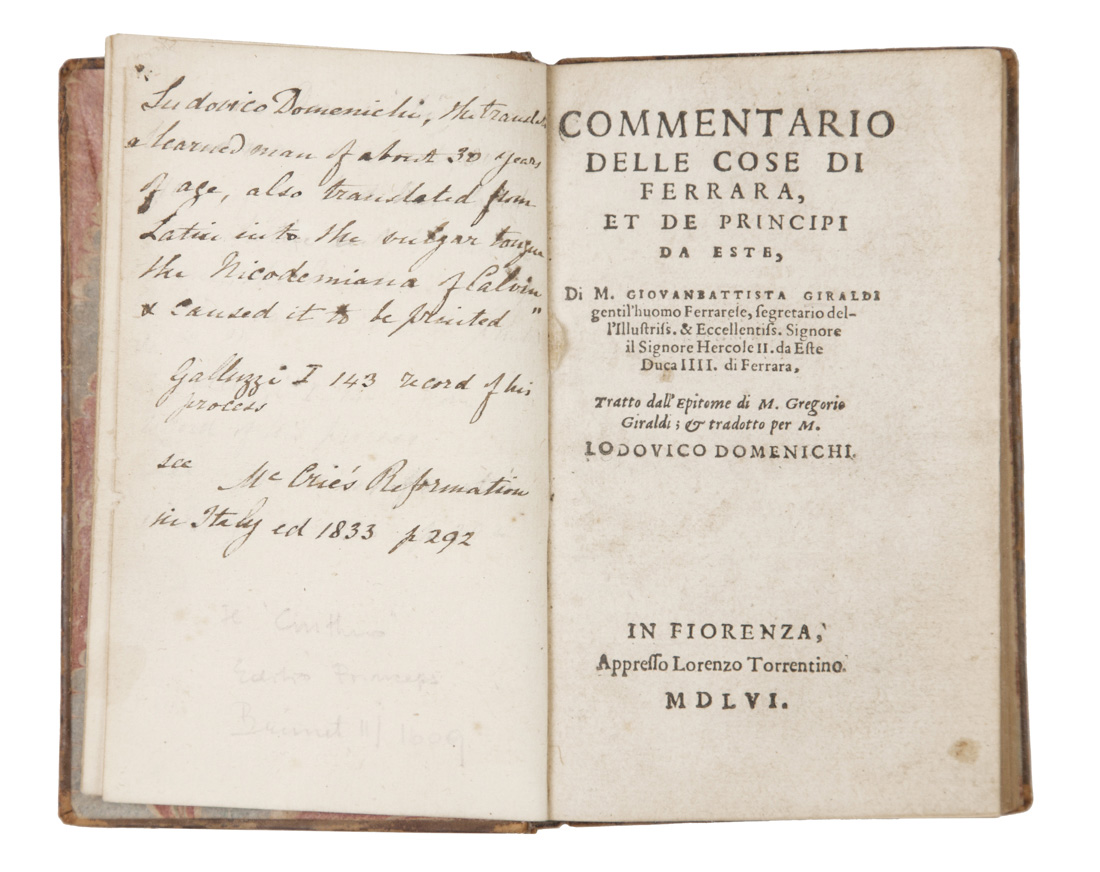 " Ludovico Domenichi, the
a learned man of about 30 years
of age, also translated from
Latin into the vulgar tongue
the Nicodemiana of Calvin
& caused it to be printed "
Galluzzi I 143 record of his
process
see McCrie's Reformation
in Italy ed 1833 p 292
Editio Princeps
Brunet II/1609
COMMENTARIO
DELLE COSE DI
FERRARA,
ET DE PRINCIPI
DA ESTE,
Di M. GIOVANBATTISTA GIRALDI
gentil'huomo Ferrarese, segretario del-
l'Illustriss. & Eccellentiss. Signore
il Signore Hercole II. da Este
Duca IIII. di Ferrara,
Tratto dall'Epitome di M. Gregorio
Giraldi; & tradotto per M.
LODOVICO DOMENICHI.
IN FIORENZA,
Appresso Lorenzo Torrentino.
MDLVI.